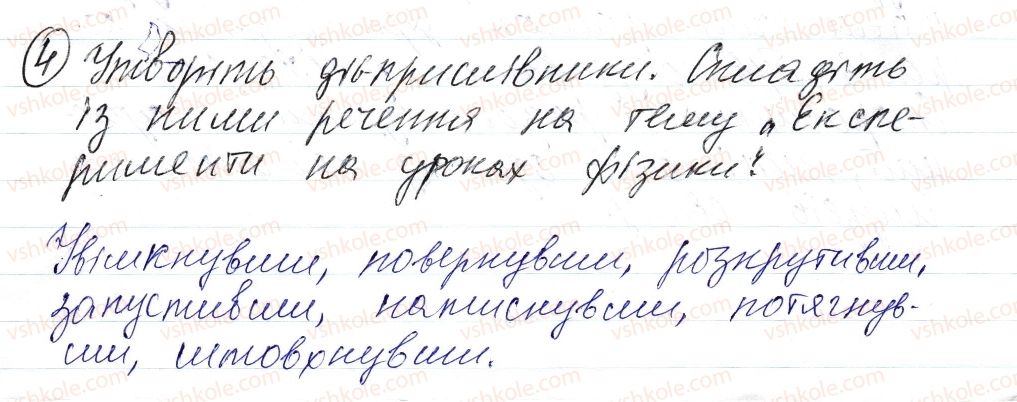 4 Утворіть дієприслівники. Складіть
із ними речення на тему „Експе-
рименти на уроках фізики".
Увімкнувши, повернувши, розкрутивши,
запустивши, натиснувши, потягнув-
ши, штовхнувши.